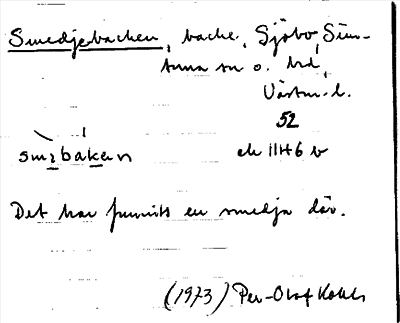 Smedjebacken, backe, Sjöbo, Sim-
tuna sn o. hd,
Västm. l.
52
smɛbakɛn ek 11H6 b
Det har funnits en smedja där.
(1973) Per-Olof Kohls